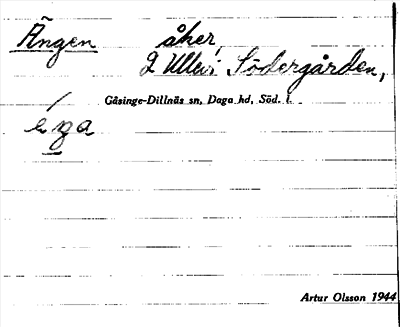 Ängen åker,
2 Ullevi Södergården,
Gåsinge-Dillnäs sn, Daga hd, Söd. l.
Artur Olsson 1944